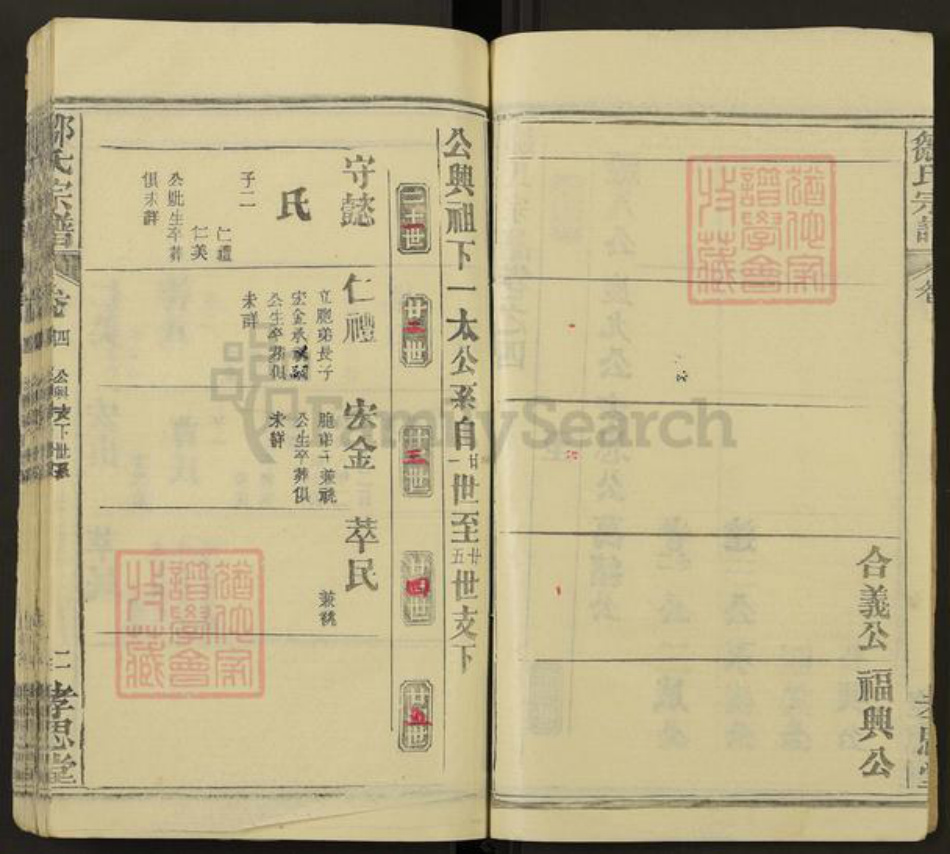 合義公
福興公
公興祖下一太公系自廿一世至廿五世支下
二十一世
廿二世
廿三世
廿四世
廿五世
守懿
氏
子二
仁禮
仁美
公妣生卒葬
俱未詳
仁禮
立胞弟長子
宏金承祧嗣
公生卒葬俱
未詳
宏金
胞弟子兼祧
公生卒葬俱
未詳
萃民
兼祧
鄒氏宗譜
卷四
公興支下世系
二
孝思堂
FamilySearch